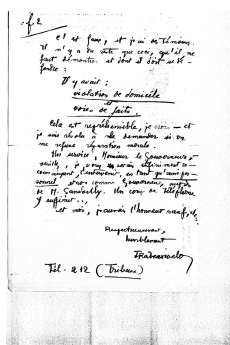 f. 2.
c'est faux, et j'ai des témoins.
Il n'y a de vrai que ceci, qu'il me
faut démontrer et dont il doit se dé-
fendre :
Il y avait :
violation de domicile
et
voies de faits.
Cela est répréhensible, je crois — et
je suis résolu à le demander si on
me refuse réparation morale.
Un service, Monsieur le Gouverneur,
je vous
comme
sonnel, non comme Gouverneur, auprès
de M. Gandavelly. Un coup de téléphone
y suffirait...
et moi, j'aurais l'honneur sauf, etc.
Respectueusement,
humblement
Rabearivelo
Tél - 212 (Tribune)